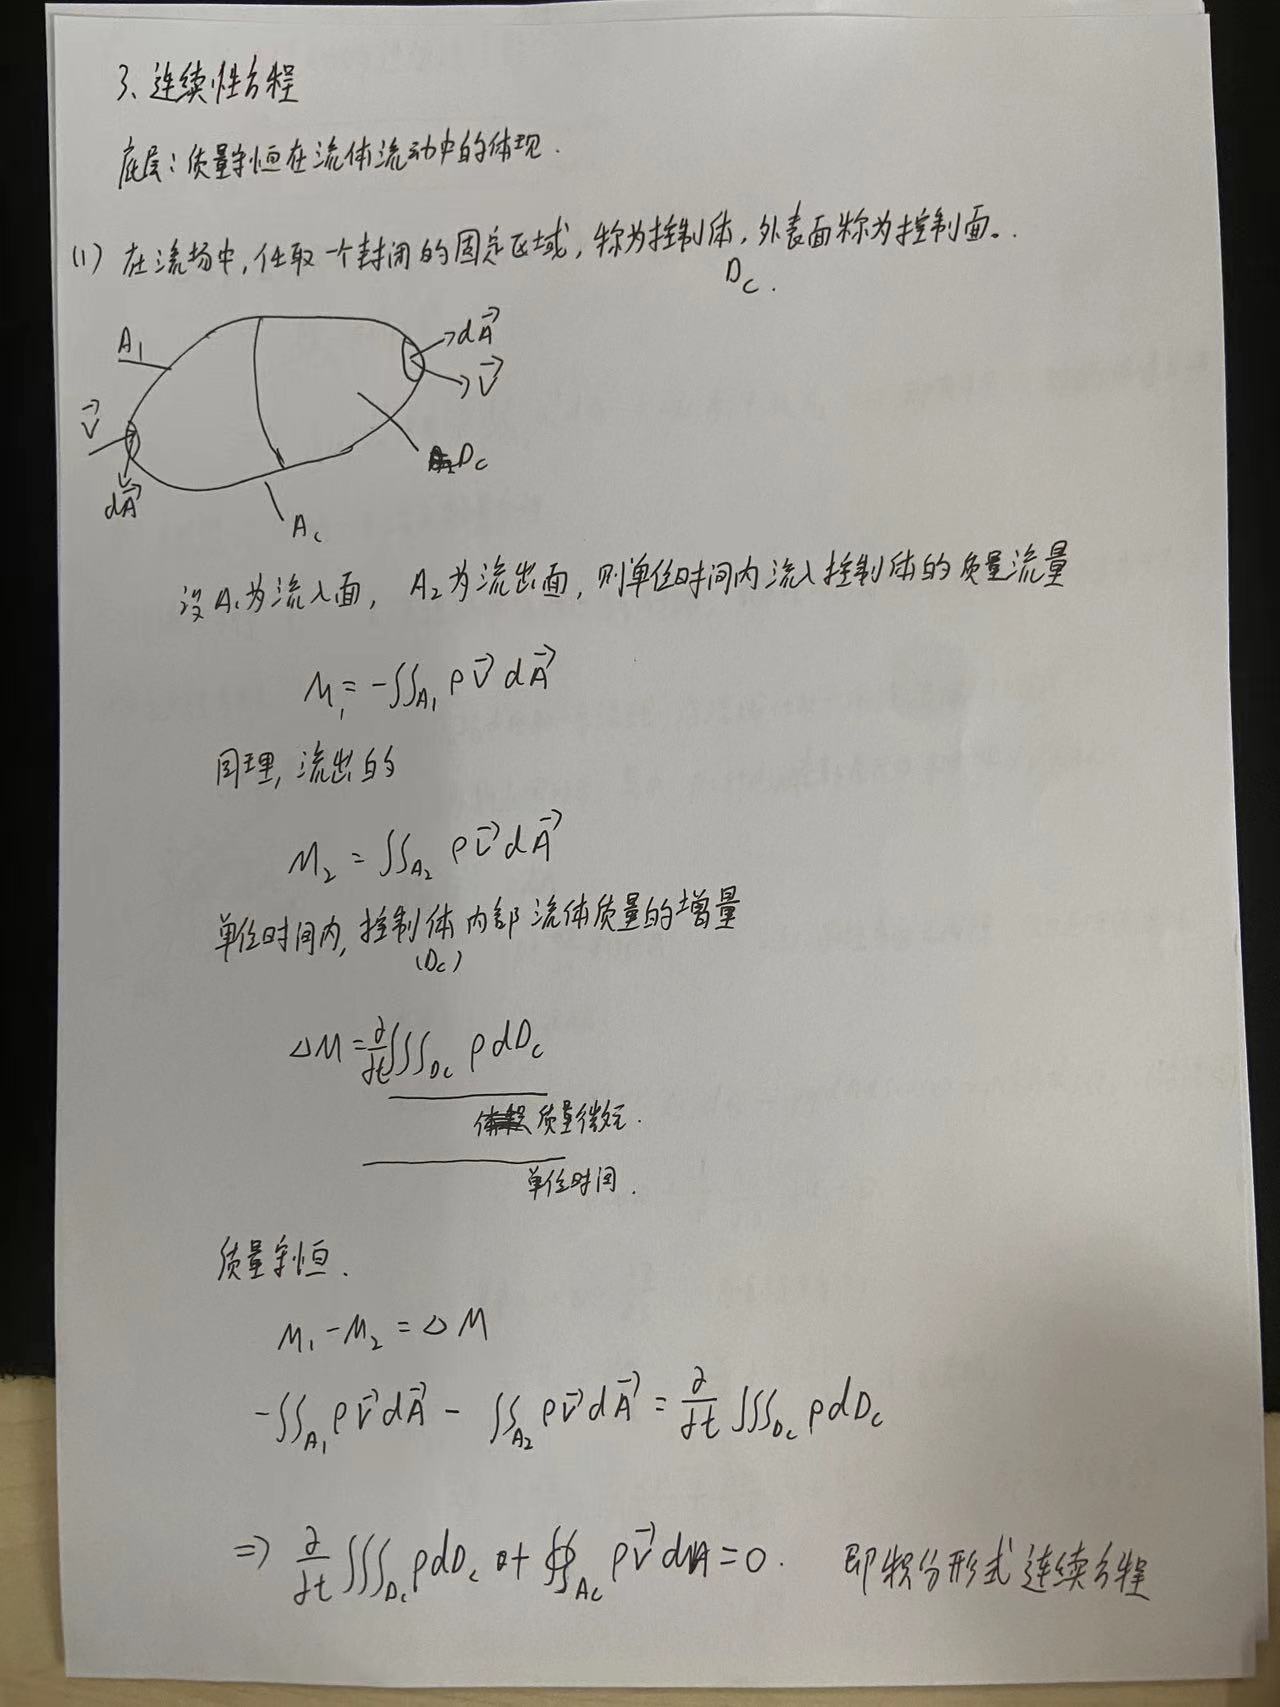 3、连续性方程
底层：质量守恒在流体流动中的体现.
(1) 在流场中,任取一个封闭的固定区域,称为控制体,外表面称为控制面。.
Dc.
A₁
dA⃗
V⃗
V⃗
Dc
dA⃗
Ac
设A₁为流入面, A₂为流出面,则单位时间内流入控制体的质量流量
M₁=-∬A₁ ρV⃗dA⃗
同理,流出的
M₂=∬A₂ ρV⃗dA⃗
单位时间内,控制体内部流体质量的增量
(Dc)
△M=∂/∂t∭Dc ρdDc
质量微元.
单位时间.
质量守恒.
M₁-M₂=△M
-∬A₁ ρV⃗dA⃗ - ∬A₂ ρV⃗dA⃗ = ∂/∂t ∭Dc ρdDc
⇒ ∂/∂t ∭Dc ρdDc + ∯Ac ρV⃗dA=0. 即积分形式连续方程